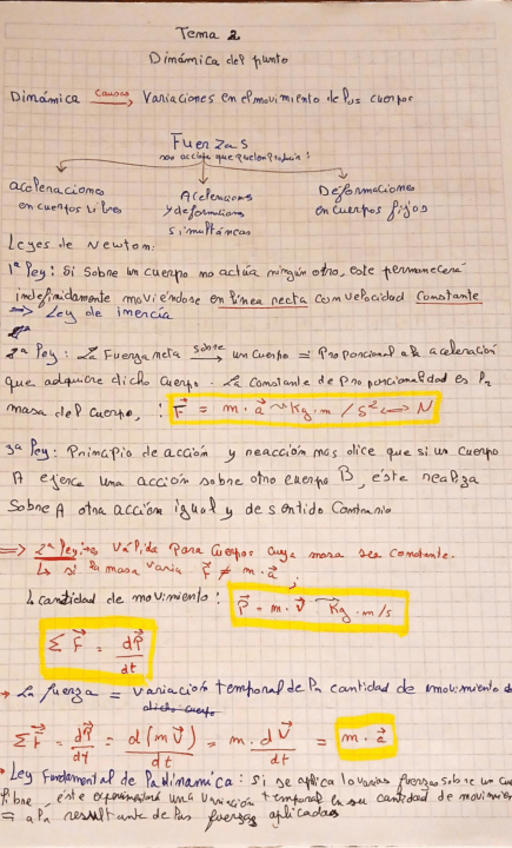 Tema 2
Dinámica del punto
Dinámica causas→ Variaciones en el movimiento de los cuerpos
Fuerzas
son acción que pueden producir:
aceleraciones en cuerpos libres
Aceleraciones y deformaciones simultáneas
Deformaciones en cuerpos fijos
Leyes de Newton:
1ª ley: Si sobre un cuerpo no actúa ningún otro, este permanecerá
indefinidamente moviéndose en línea recta con velocidad constante
=> Ley de inercia
2ª ley: La Fuerza neta sobre→ un cuerpo = Proporcional a la aceleración
que adquiere dicho cuerpo. La constante de proporcionalidad es la
masa del cuerpo, : F⃗ = m · a⃗ ~ Kg·m/s² <-> N
3ª ley: Principio de acción y reacción nos dice que si un cuerpo
A ejerce una acción sobre otro cuerpo B, éste realiza
Sobre A otra acción igual y de sentido contrario
=> 2ª ley: es Válida para cuerpos cuya masa sea constante.
↳ si la masa varia F⃗ ≠ m · a⃗ ;
↳ cantidad de movimiento: P⃗ = m · v⃗ ~ Kg · m/s
Σ F⃗ = dP⃗/dt
→ La fuerza = variación temporal de la cantidad de movimiento de
dicho cuerpo
ΣF⃗ = dP⃗/dt = d(m v⃗)/dt = m · dv⃗/dt = m · a⃗
• Ley Fundamental de la dinámica: si se aplica 1 o varias fuerzas sobre un cuerpo
libre, éste experimentará una variación temporal en su cantidad de movimiento
= a la resultante de las fuerzas aplicadas